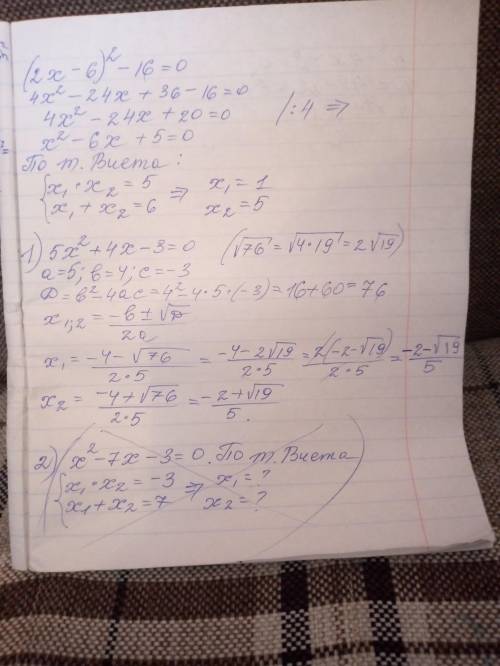 (2x - 6)² - 16 = 0
4x² - 24x + 36 - 16 = 0
4x² - 24x + 20 = 0 /:4 ⇒
x² - 6x + 5 = 0
По т. Виета:
{x₁ · x₂ = 5 ⇒ x₁ = 1
x₁ + x₂ = 6 x₂ = 5
1) 5x² + 4x - 3 = 0 (√76 = √4·19 = 2√19)
a = 5; b = 4; c = -3
D = b² - 4ac = 4² - 4·5·(-3) = 16 + 60 = 76
x₁;₂ = (-b ± √D)/2a
x₁ = (-4 - √76)/(2·5) = (-4 - 2√19)/(2·5) = 2(-2 - √19)/(2·5) = (-2 - √19)/5
x₂ = (-4 + √76)/(2·5) = (-2 + √19)/5.
2) x² - 7x - 3 = 0. По т. Виета
{x₁ · x₂ = -3 ⇒ x₁ = ?
x₁ + x₂ = 7 x₂ = ?